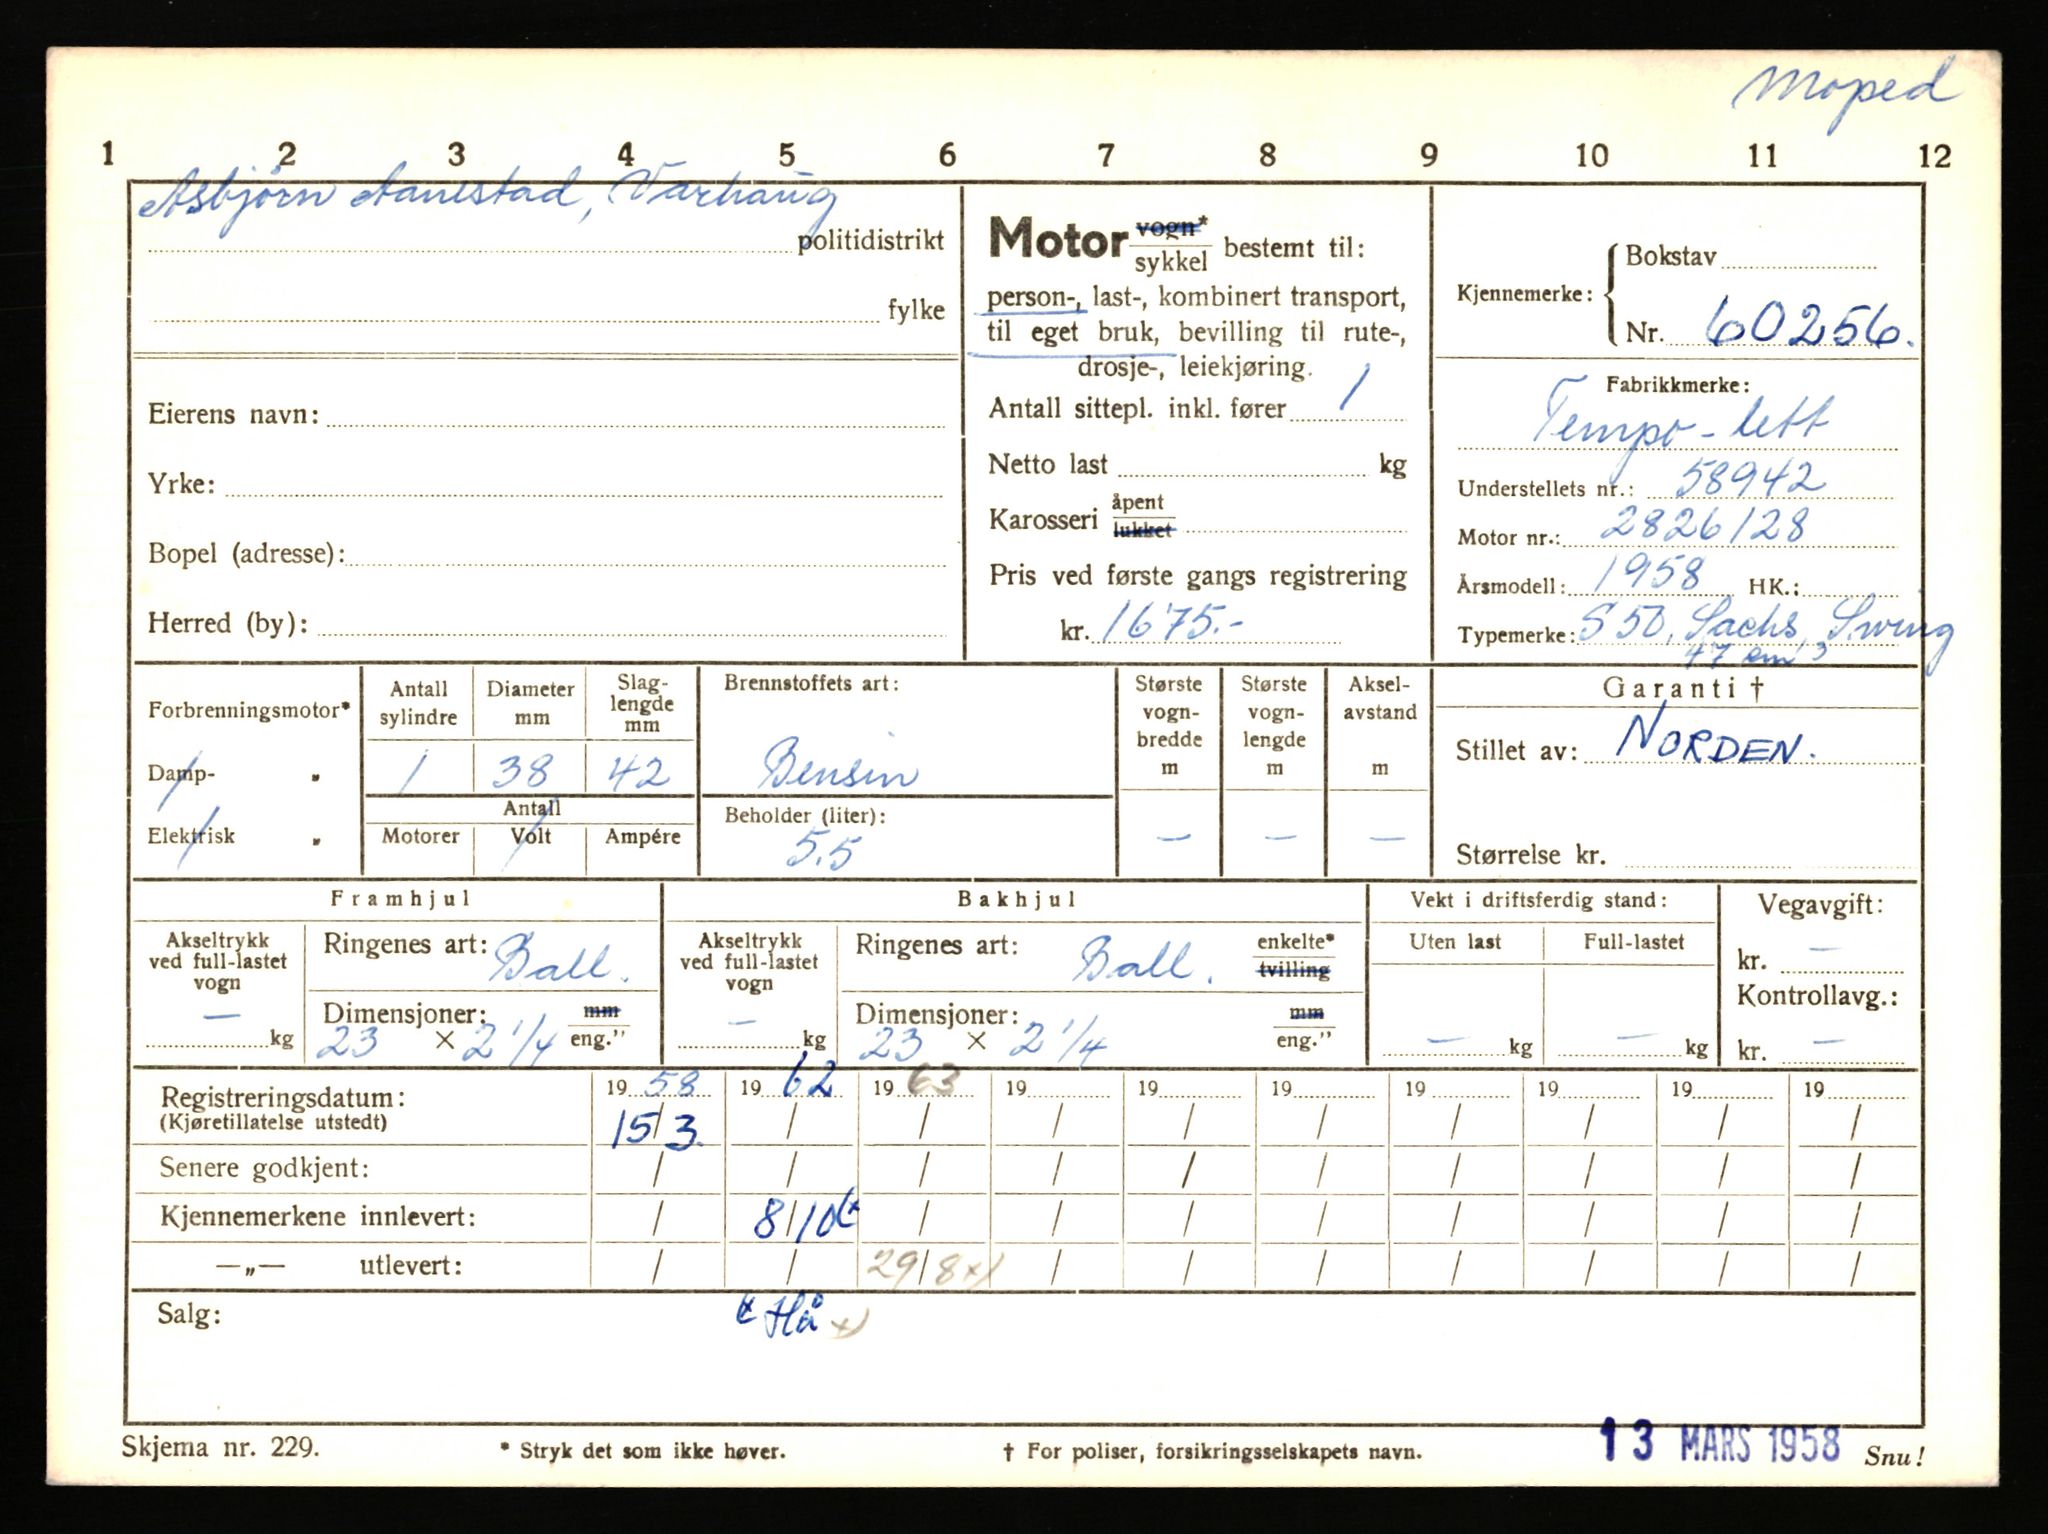 Moped
1 2 3 4 5 6 7 8 9 10 11 12
Asbjörn Aanestad, Varhaug
politidistrikt
fylke
Eierens navn:
Yrke:
Bopel (adresse):
Herred (by):
Motor vogn*
sykkel bestemt til:
person-, last-, kombinert transport,
til eget bruk, bevilling til rute-,
drosje-, leiekjøring.
Antall sittepl. inkl. fører 1
Netto last kg
Karosseri åpent
lukket
Pris ved første gangs registrering
kr. 1675.-
Kjennemerke: { Bokstav
Nr. 60256.
Fabrikkmerke:
Tempo - lett
Understellets nr.: 58942
Motor nr.: 2826128
Årsmodell: 1958 HK.:
Typemerke: S 50, Sachs, Swing
47 cm³
Forbrenningsmotor*
Damp- „
Elektrisk „
Antall sylindre
Diameter mm
Slag-lengde mm
1 38 42
Antall
Motorer Volt Ampére
Brennstoffets art:
Bensin
Beholder (liter):
5.5
Største vogn-bredde m
Største vogn-lengde m
Aksel-avstand m
— — —
Garanti †
Stillet av: NORDEN.
Størrelse kr.
Framhjul
Akseltrykk
ved full-lastet
vogn
— kg
Ringenes art: Ball.
Dimensjoner: mm
23 × 2 1/4 eng."
Bakhjul
Akseltrykk
ved full-lastet
vogn
— kg
Ringenes art: Ball. enkelte*
tvilling
Dimensjoner: mm
23 × 2 1/4 eng."
Vekt i driftsferdig stand:
Uten last Full-lastet
— kg — kg
Vegavgift:
kr. —
Kontrollavg.:
kr. —
Registreringsdatum: 19 58 19 62 19 63 19 19 19 19 19 19 19
(Kjøretillatelse utstedt) 15/3. / / / / / / / / /
Senere godkjent: / / / / / / / / / /
Kjennemerkene innlevert: / 8/10(x / / / / / / / /
—„— utlevert: / / 29/8 x) / / / / / / /
Salg: (x Hå x)
Skjema nr. 229. * Stryk det som ikke høver. † For poliser, forsikringsselskapets navn. 13 MARS 1958 Snu!